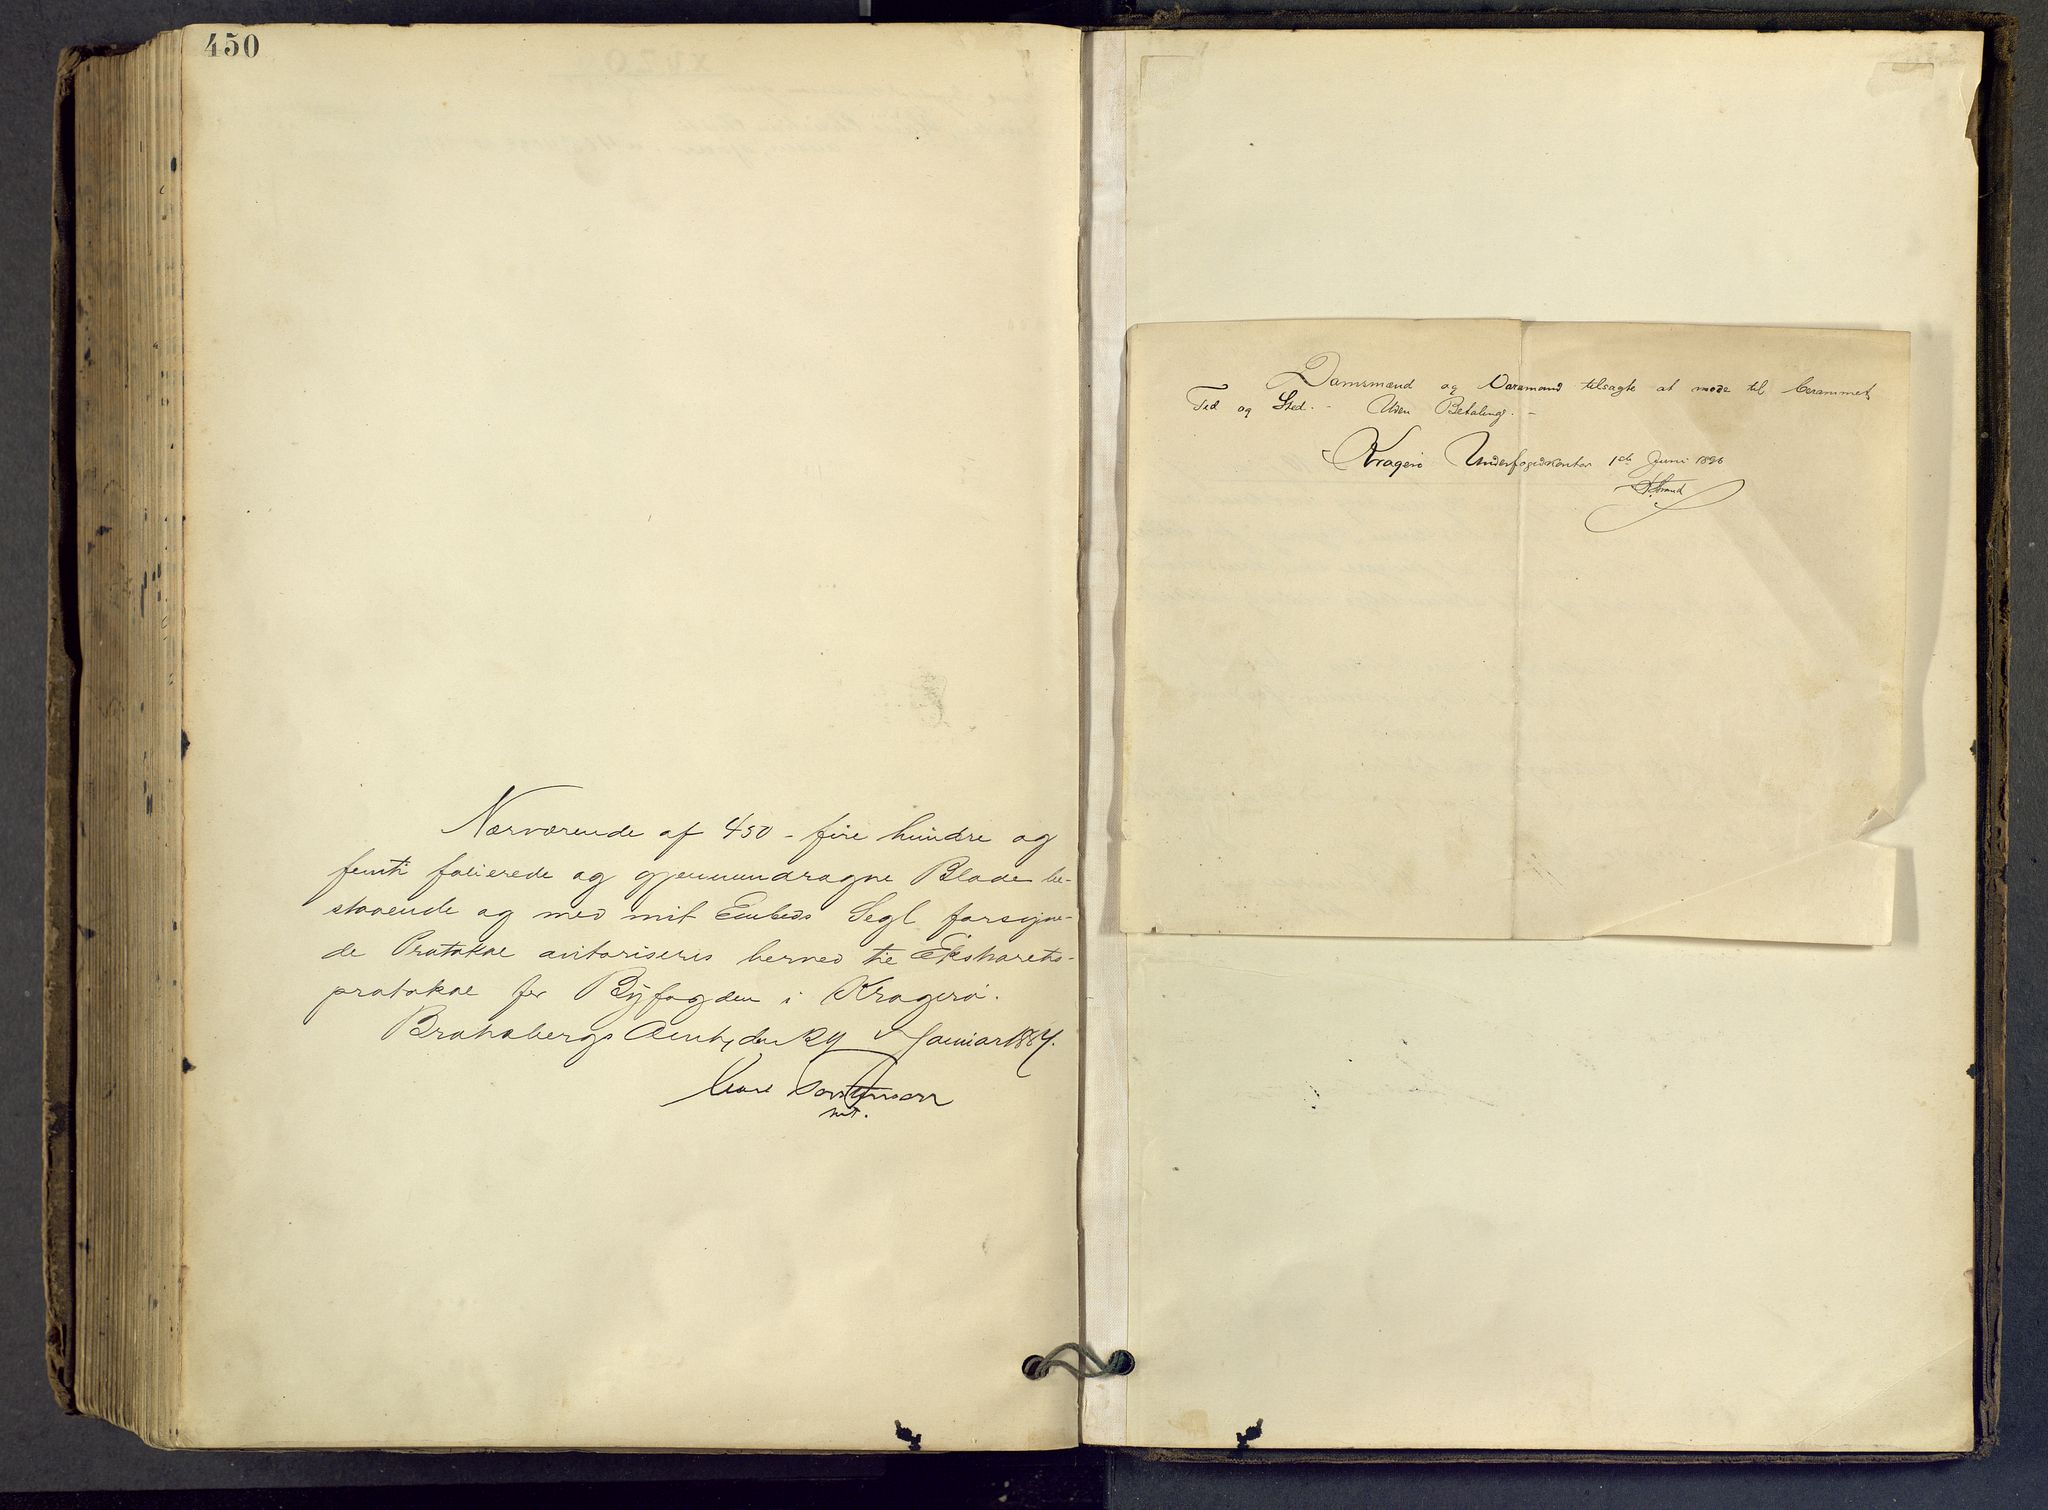 450
Nærværende af 450 - fire hundre og
femti folierede og gjennemdragne Blade be-
staaende og med mit Embeds Segl forsyne-
de Protokol autoriseres herved til Ekstrarets-
protokol for Byfogden i Kragerø.
Bratsberg Amt, den 24 Januar 1887.
const.
Domsmænd og Varamænd tilsagte at møde til berammet
Tid og Sted. - Uden Betaling. -
Kragerø Underfogedkontor 1ste Juni 1896
Strand